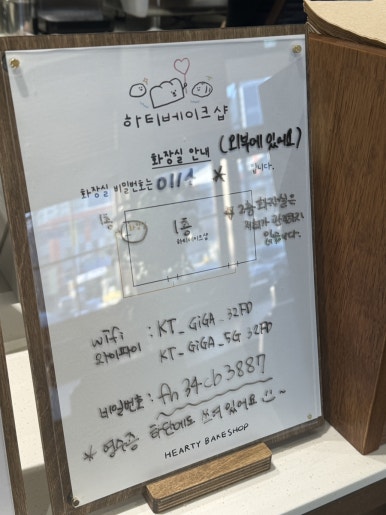 하티베이크샵
화장실 안내 (외부에 있어요)
화장실 비밀번호는 입니다.
1층
1층
하티베이크샵
* 2층 화장실은
저희가 관리하지
않습니다.
wifi : KT_GiGA_32FD
와이파이 KT_GiGA_5G_32FD
비밀번호 :
* 영수증 하단에도 쓰여있어요 ~
HEARTY BAKESHOP